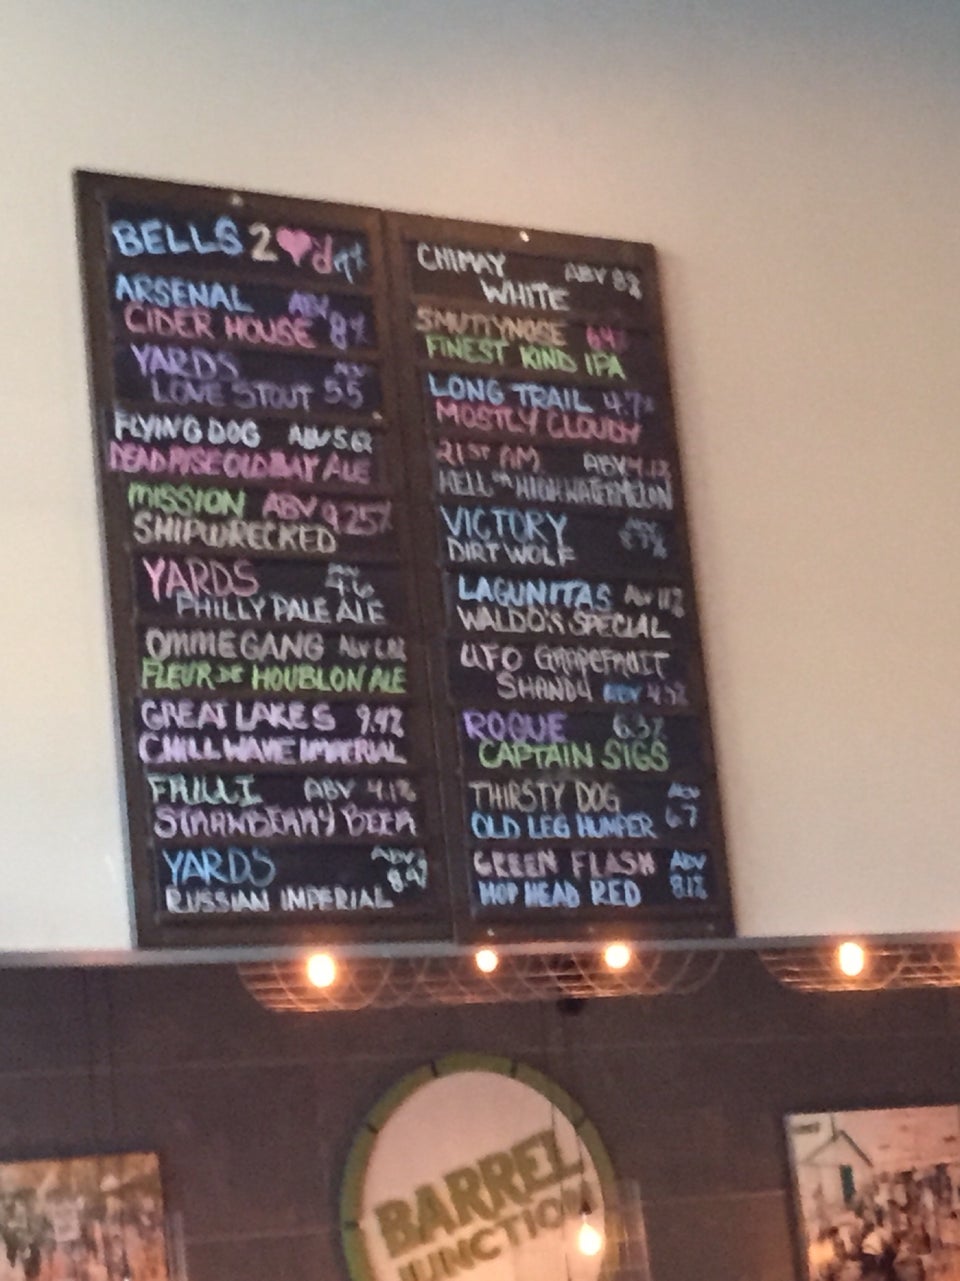 BELLS 2 ♥'d
ARSENAL ABV
CIDER HOUSE 8%
YARDS ABV
LOVE STOUT 5.5
FLYING DOG ABV 5.6%
DEAD RISE OLD BAY ALE
MISSION ABV 9.25%
SHIPWRECKED
YARDS ABV 4.6
PHILLY PALE ALE
OMMEGANG ABV
FLEUR DE HOUBLON ALE
GREAT LAKES 9.4%
CHILLWAVE IMPERIAL
FRULLI ABV 4.1%
STRAWBERRY BEER
YARDS ABV
RUSSIAN IMPERIAL
CHIMAY ABV 8%
WHITE
SMUTTYNOSE
FINEST KIND IPA
LONG TRAIL 4.7%
MOSTLY CLOUDY
21ST AM. ABV
HELL OR HIGH WATERMELON
VICTORY ABV
DIRT WOLF
LAGUNITAS ABV 11%
WALDO'S SPECIAL
UFO GRAPEFRUIT
SHANDY ABV
ROGUE
CAPTAIN SIGS
THIRSTY DOG ABV
OLD LEG HUMPER 6.7
GREEN FLASH ABV
HOP HEAD RED 8.1%
BARREL
JUNCTION